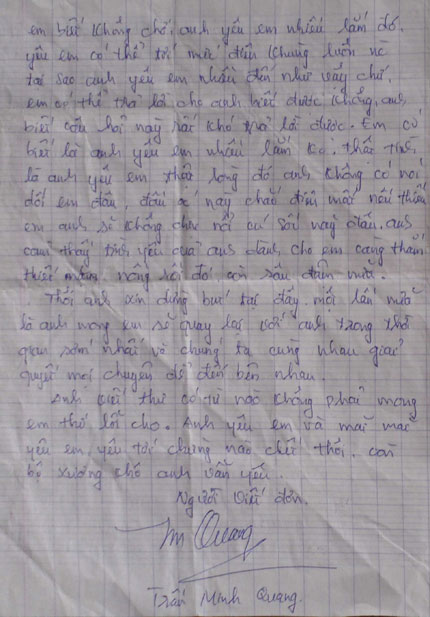 em biết không chớ, anh yêu em nhiều lắm đó.
yêu em có thể tới mức điên khùng luôn nè
tại sao anh yêu em nhiều đến như vậy chứ,
em có thể trả lời cho anh biết được không, anh
biết câu hỏi này rất khó trả lời được. Em có
biết là anh yêu em nhiều lắm ko. Thật tình
là anh yêu em thật lòng đó anh không có nói
dối em đâu, đầu óc này chắc điên mất nếu thiếu
em anh sẽ không chịu nổi cú sốc này đâu, anh
cảm thấy tình yêu của anh dành cho em càng thắm
thiết nồng rồi đó còn sâu đậm nữa.
Thôi anh xin dừng bút tại đây một lần nữa
là anh mong em sẽ quay lại với anh trong thời
gian sớm nhất và chúng ta cùng nhau giải
quyết mọi chuyện để đến bên nhau.
Anh viết thư có từ nào không phải mong
em thứ lỗi cho. Anh yêu em và mãi mãi
yêu em, yêu tới chừng nào chết thôi. còn
bộ xương khô anh vẫn yêu.
Người viết đơn.
Quang
Trần Minh Quang.